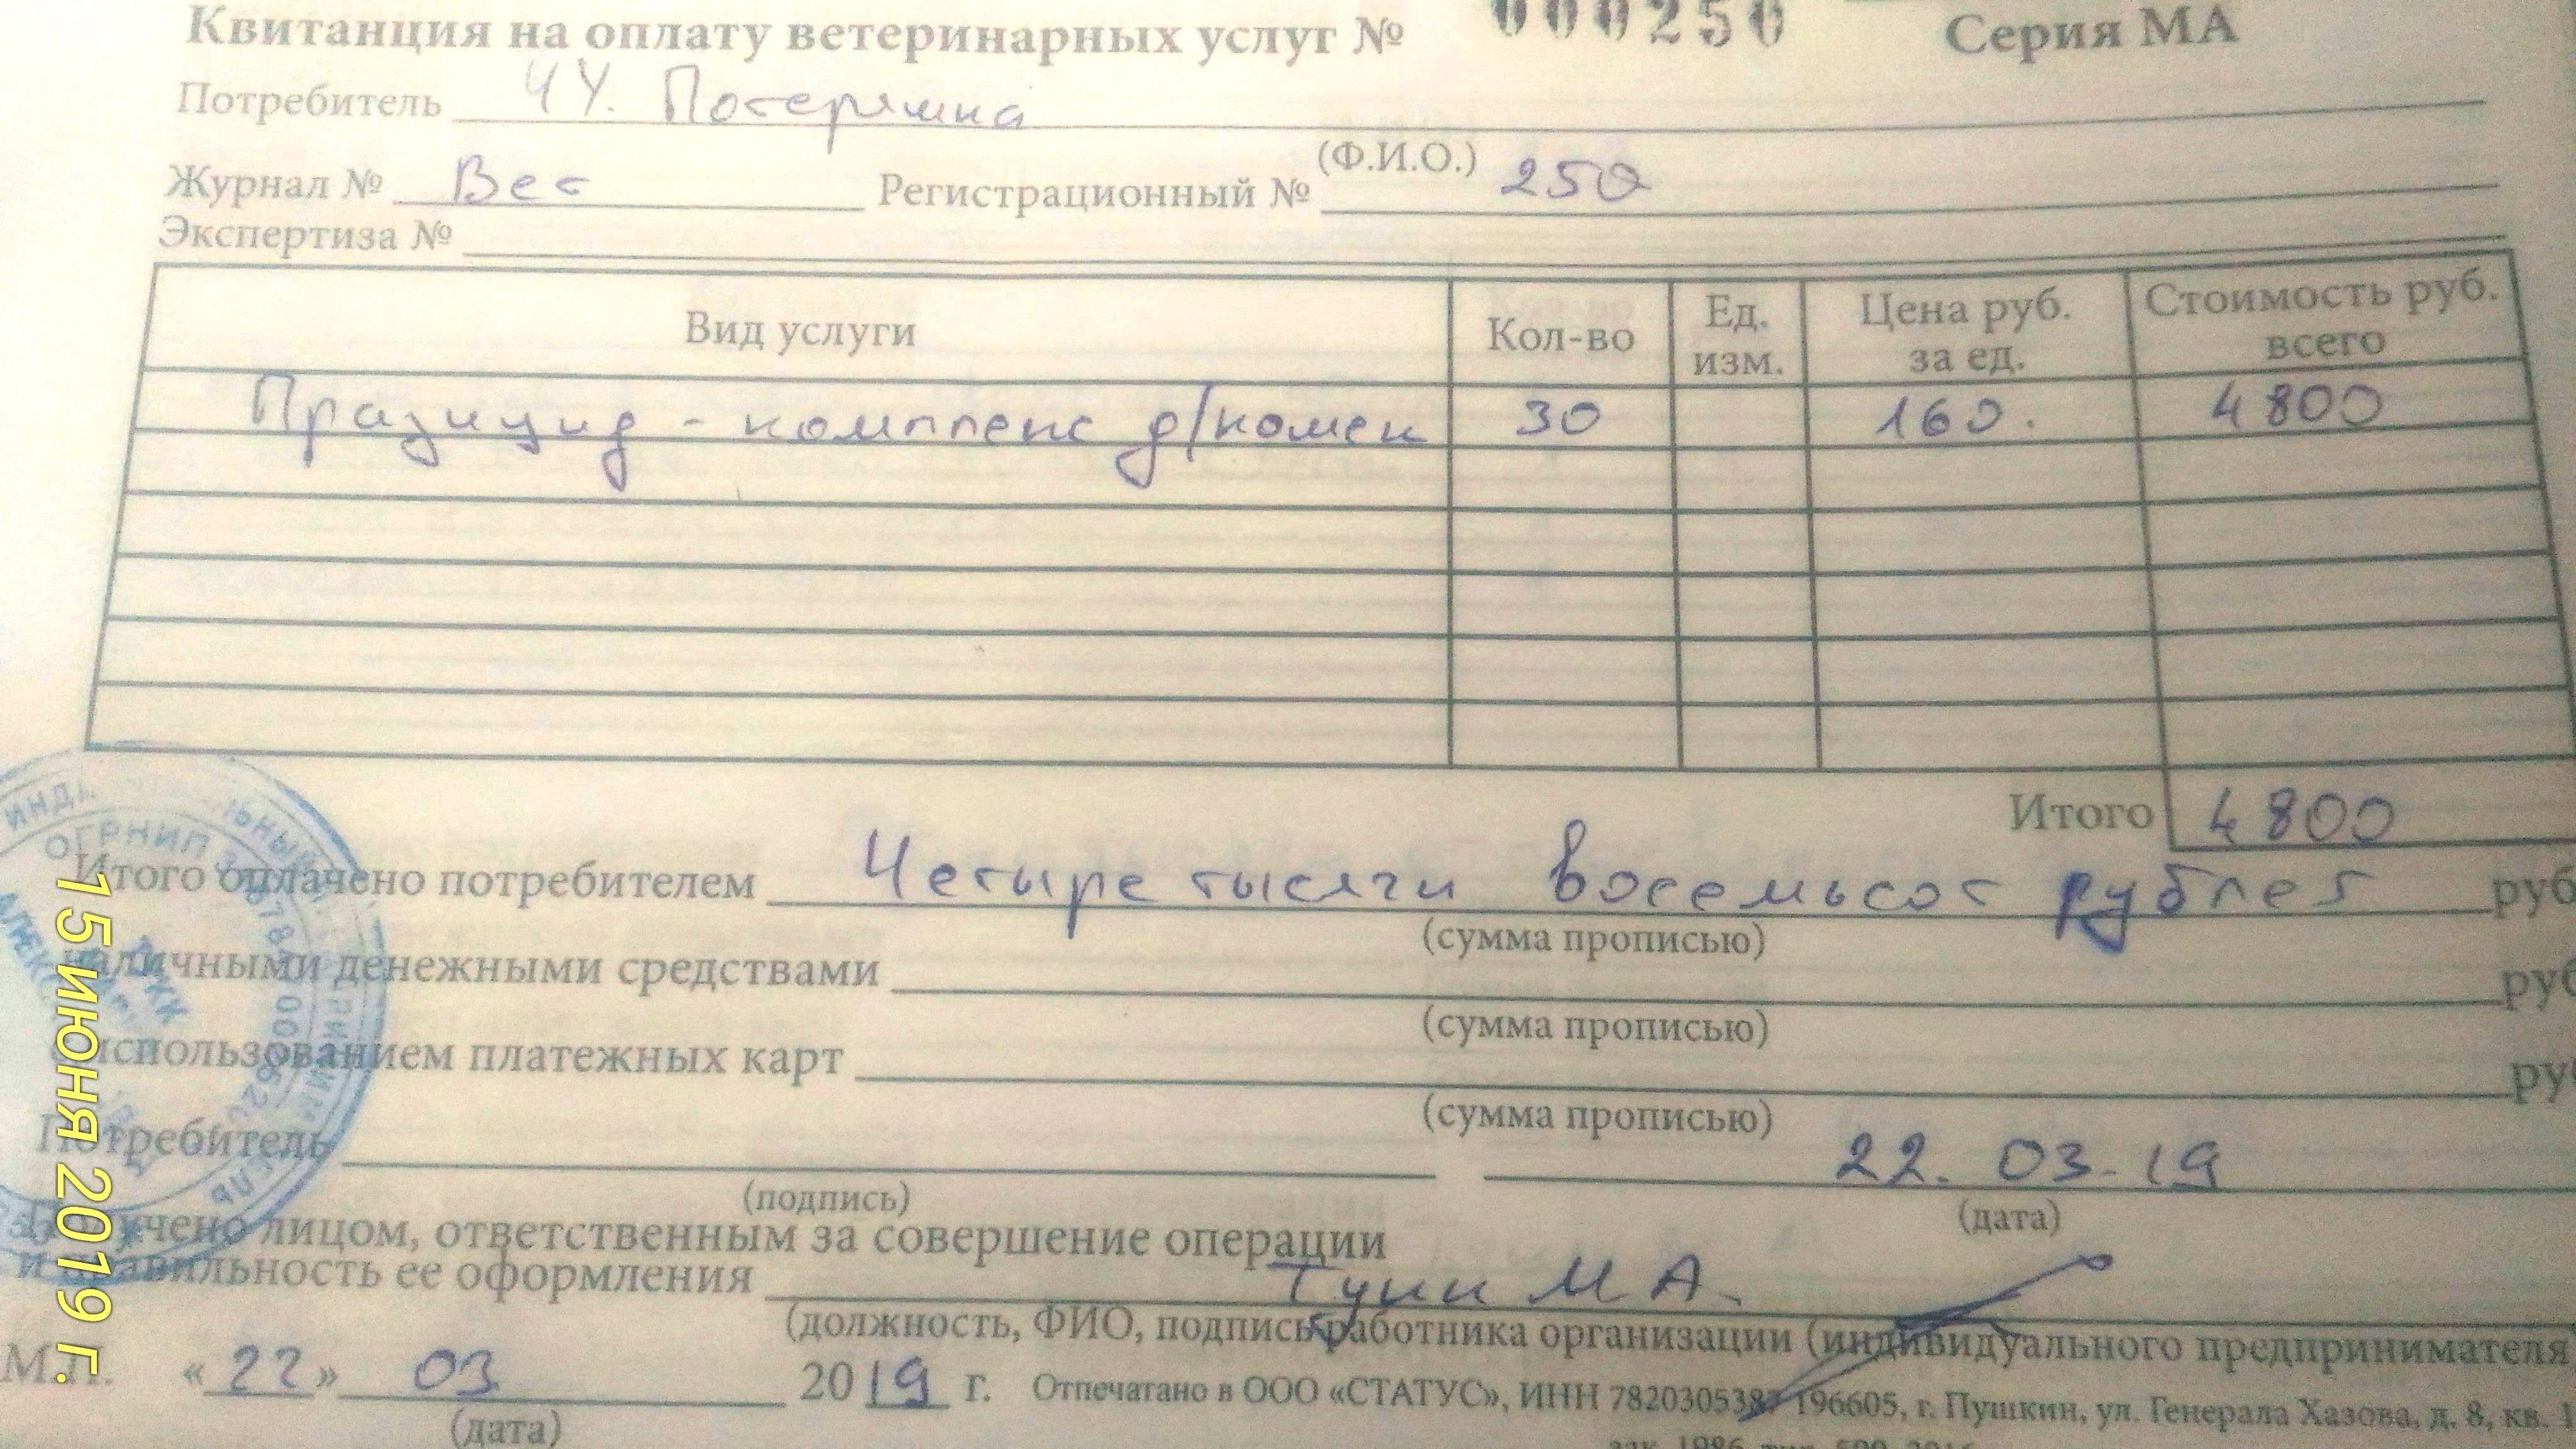 Квитанция на оплату ветеринарных услуг № 000250 Серия МА
Потребитель ЧУ. Потеряшка
(Ф.И.О.)
Журнал № Вес Регистрационный № 250
Экспертиза №
Вид услуги Кол-во Ед. изм. Цена руб. за ед. Стоимость руб. всего
Празицид - комплекс д/кошек 30 160. 4800
Итого 4800
Итого оплачено потребителем Четыре тысячи восемьсот рублей руб
(сумма прописью)
наличными денежными средствами руб
(сумма прописью)
использованием платежных карт ру
(сумма прописью)
Потребитель 22.03.19
(подпись) (дата)
Получено лицом, ответственным за совершение операции
и правильность ее оформления М А.
(должность, ФИО, подпись работника организации (индивидуального предпринимателя
М.П. «22» 03 2019 г. Отпечатано в ООО «СТАТУС», ИНН 7820305387 196605, г. Пушкин, ул. Генерала Хазова, д. 8, кв.
(дата)
ОГРНИП
15 июня 2019 г.